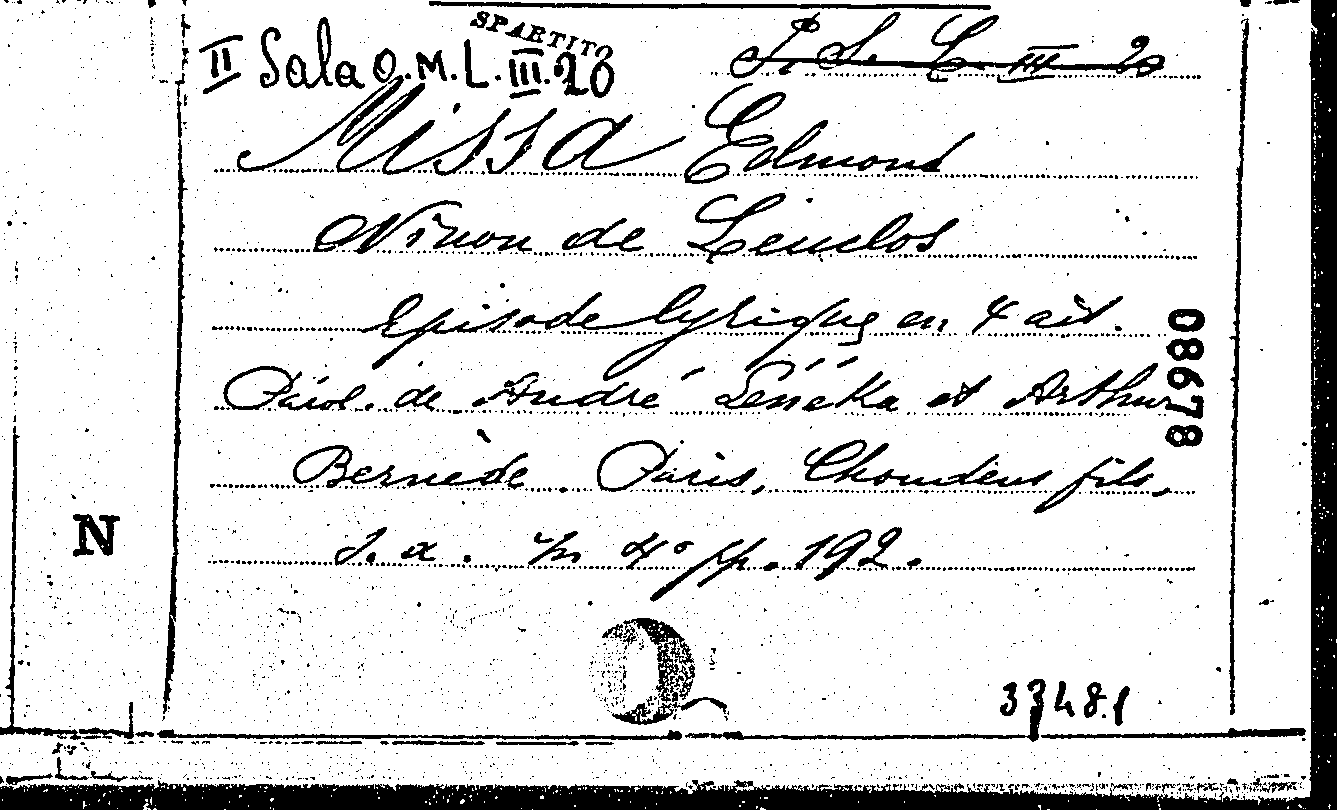 SPARTITO
II Sala O.M.L. III.20
P. S. C. III 20
Missa Edmond
Ninon de Lenclos
Episode lyrique en 4 act.
Parol. de André Lénéka et Arthur
Bernède. Paris, Choudens fils,
s.a. In 4° pp. 192.
08678
N